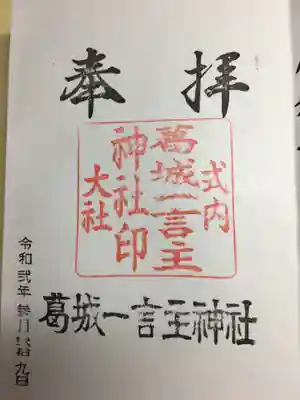 奉拝
式内
葛城一言主
神社印
大社
葛城一言主神社
令和弐年 参月弐拾九日